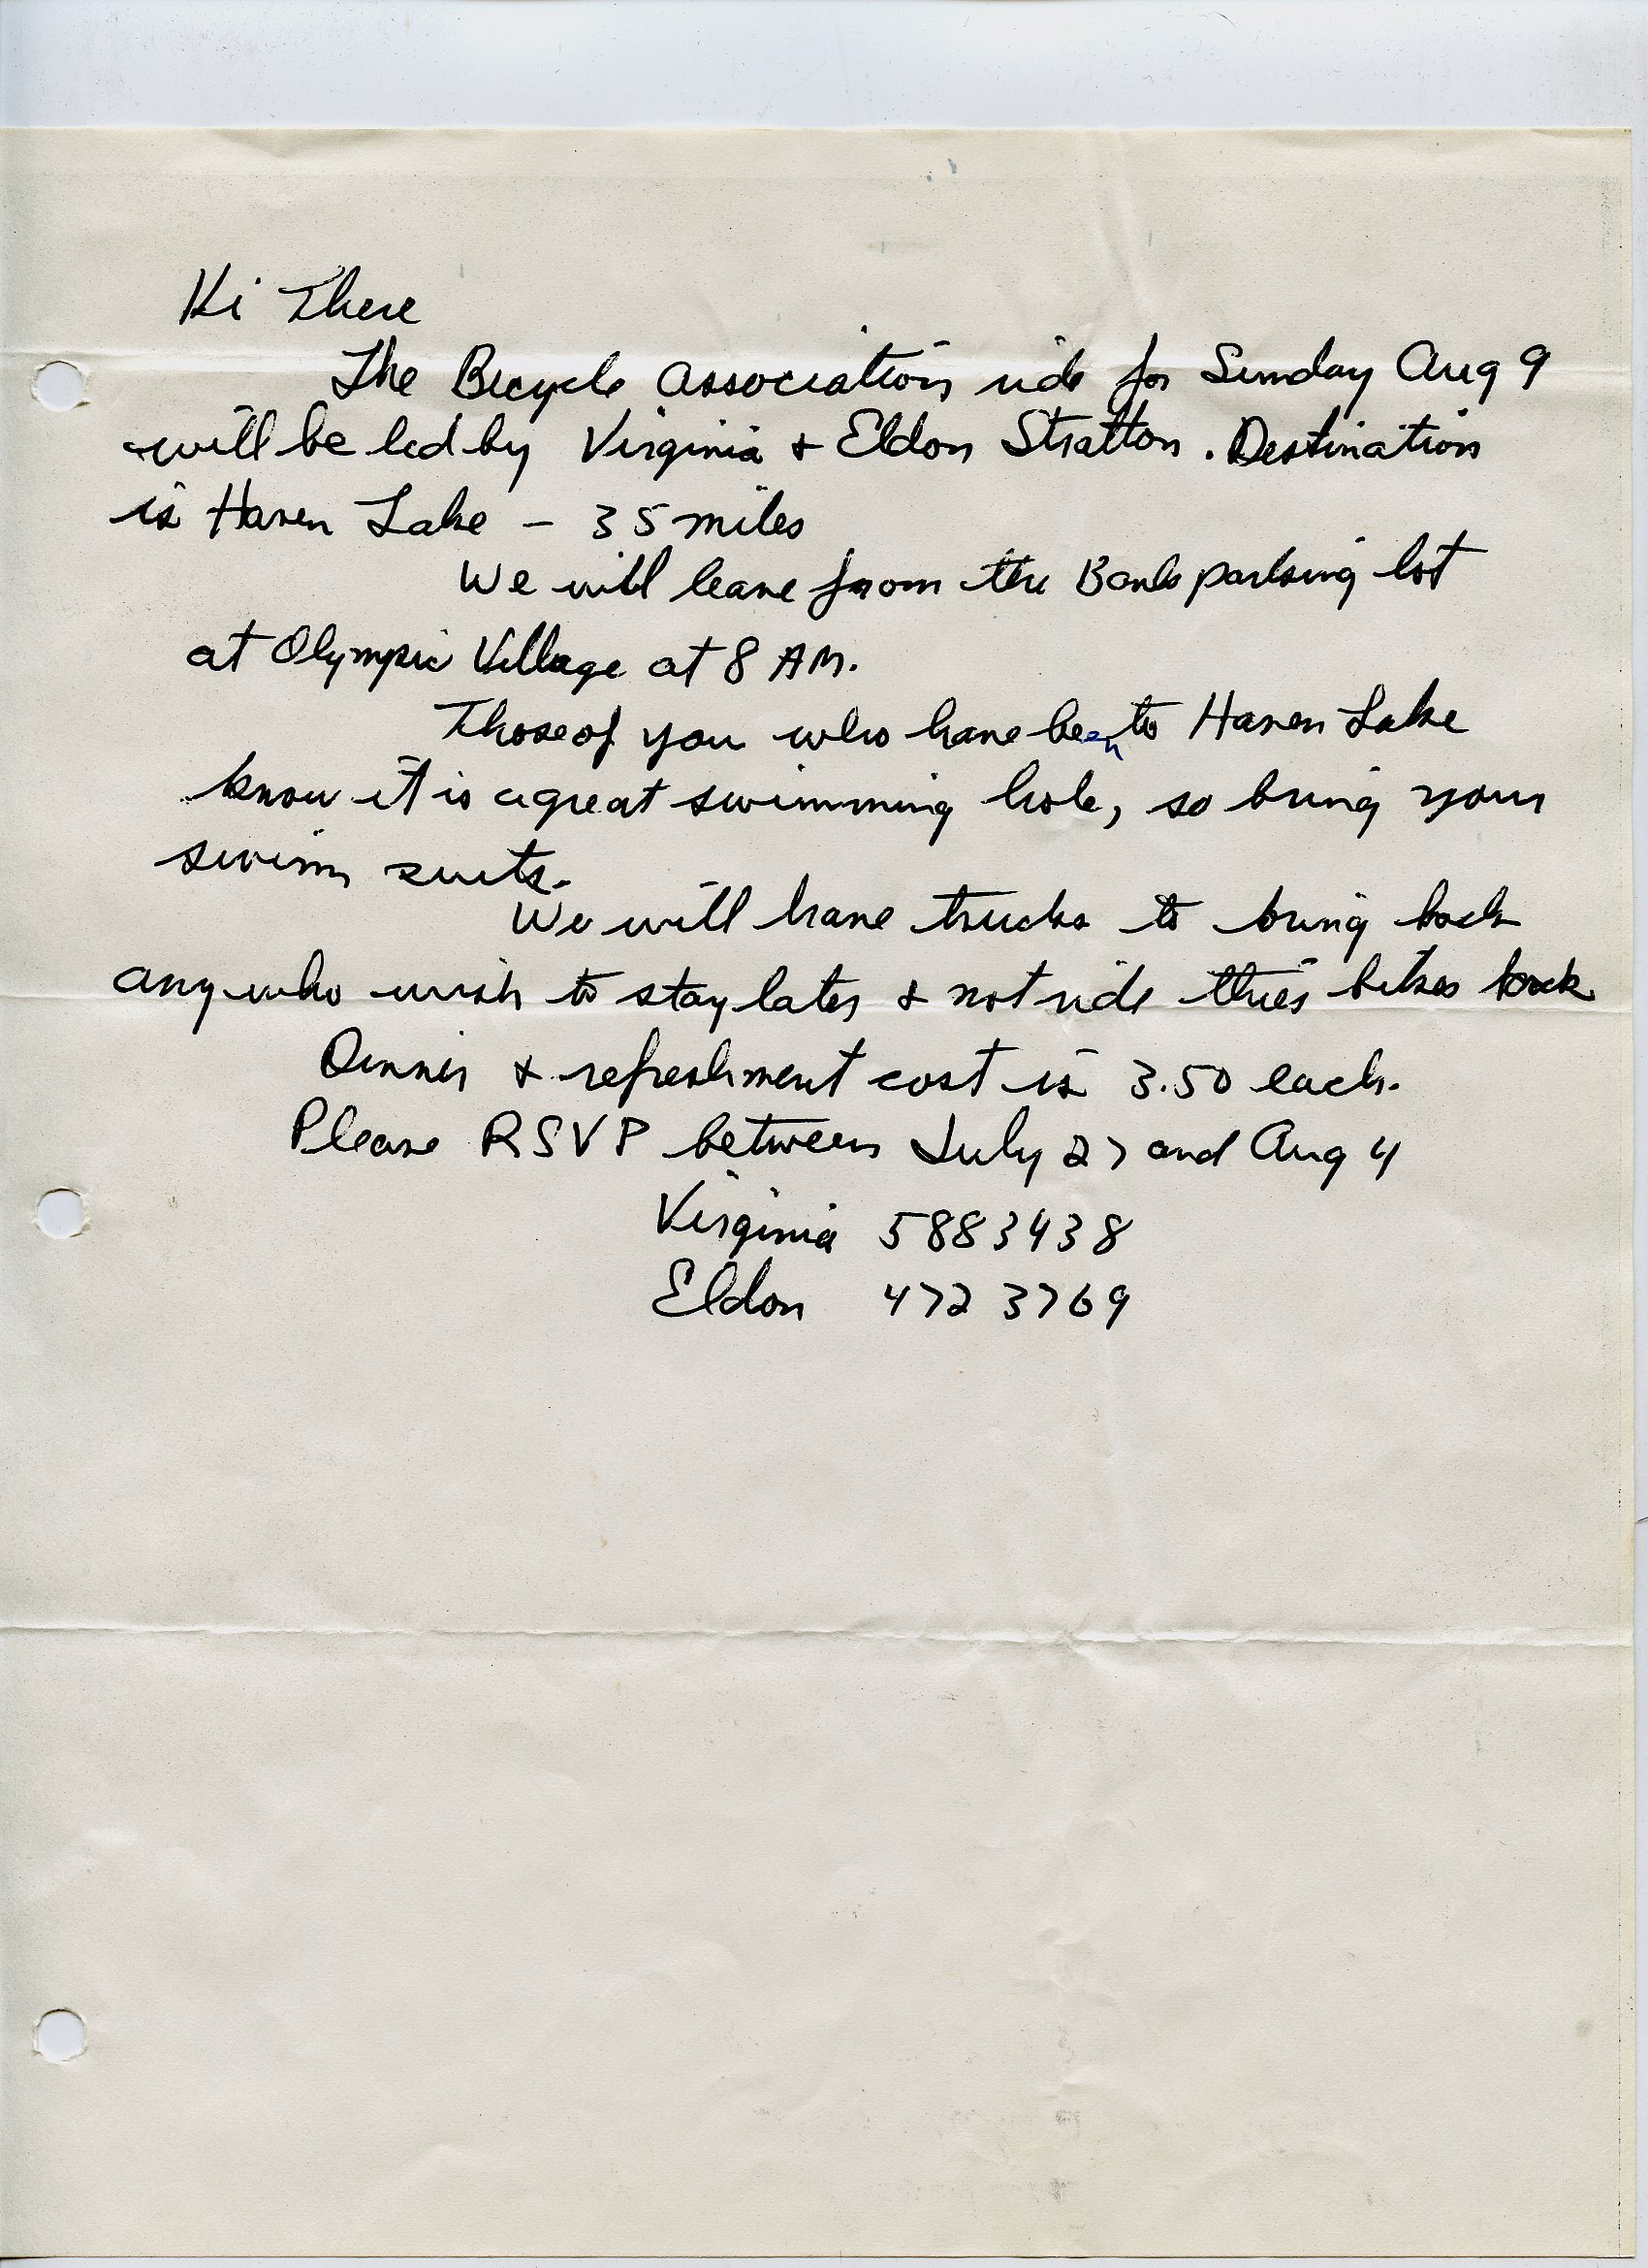 Hi There
The Bicycle Association ride for Sunday Aug 9
will be led by Virginia & Eldon Stratton. Destination
is Haven Lake - 35 miles
We will leave from the Bank parking lot
at Olympic Village at 8 AM.
Those of you who have been to Haven Lake
know it is a great swimming hole, so bring your
swim suits.
We will have trucks to bring back
any who wish to stay later & not ride thies bikes back
Dinner & refreshment cost is 3.50 each.
Please RSVP between July 27 and Aug 4
Virginia 588 3438
Eldon 472 3769